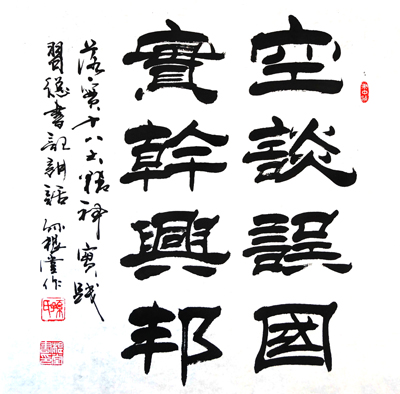 空談誤國
實幹興邦
落實十八大精神 實踐
習總書記講話 作